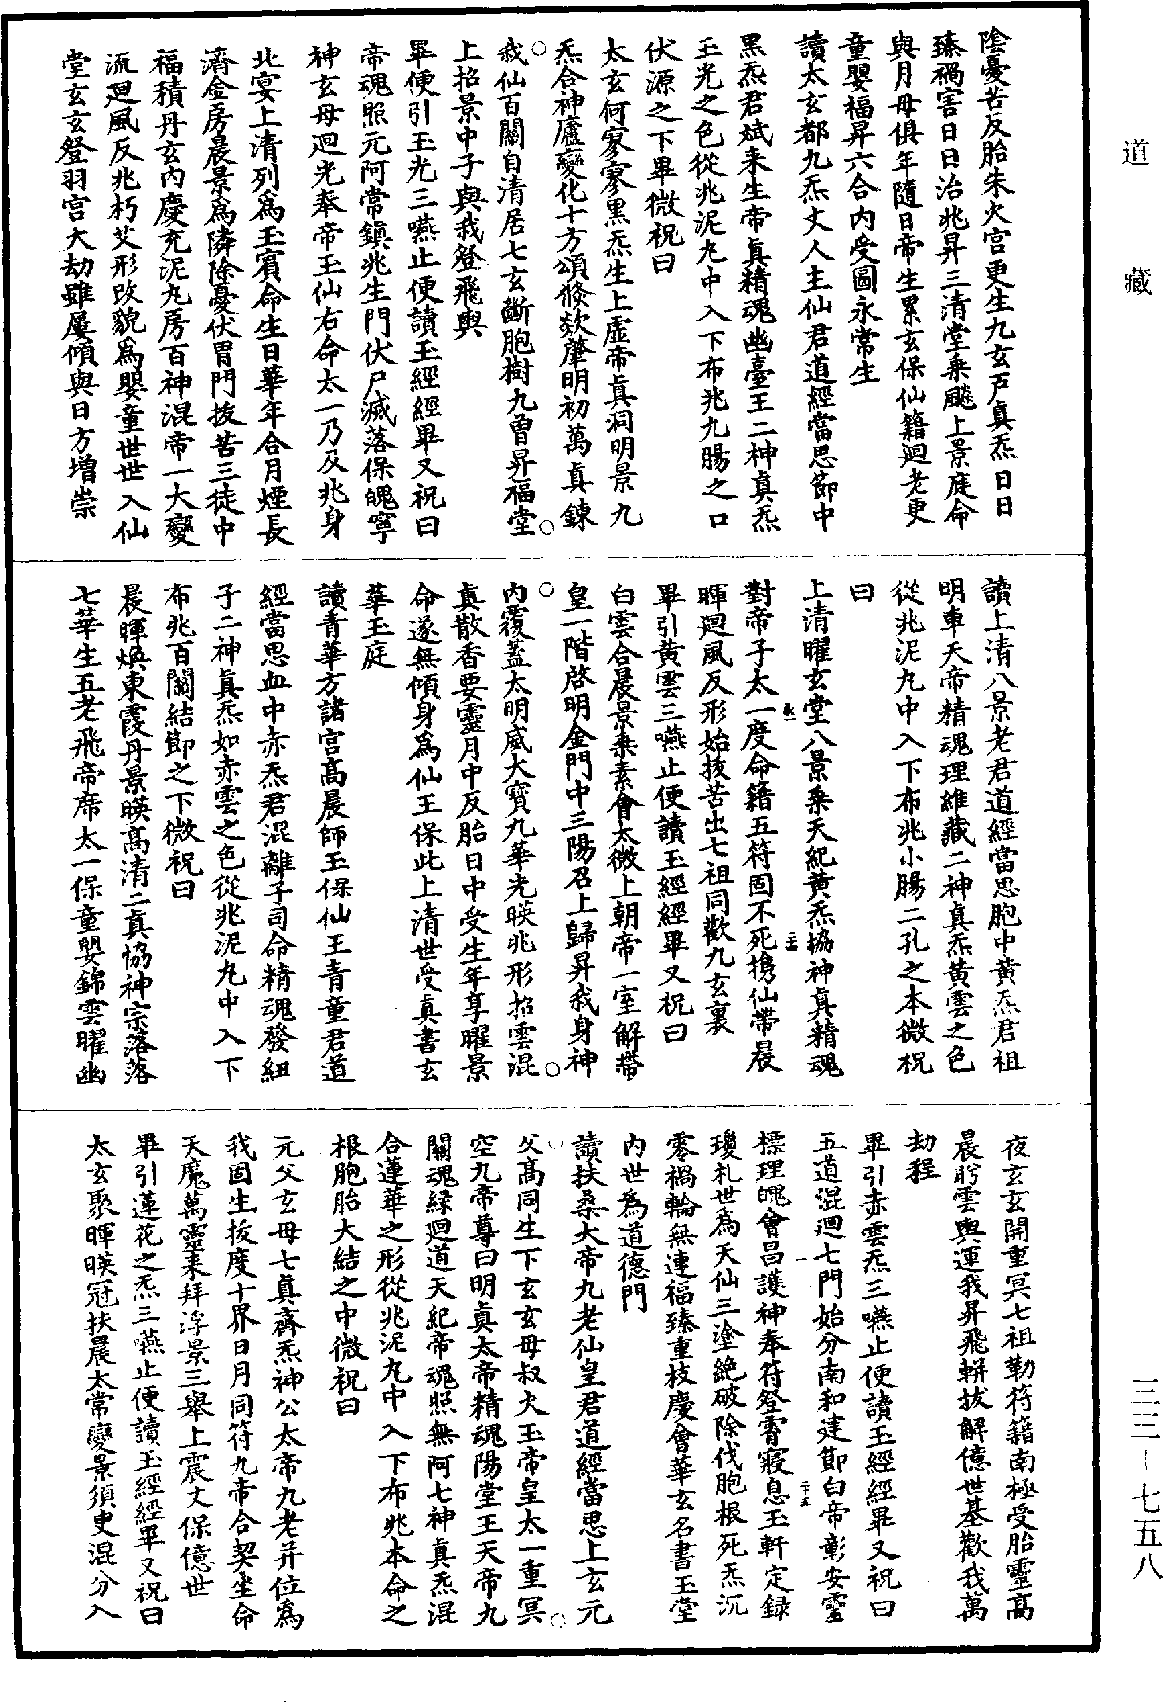 道藏
陰憂苦反胎朱火宮更生九玄戶真炁日日
臻禍害日日治兆昇三清堂乗飈上景庭命
與月母俱年隨日帝生累玄保仙籍迴老更
童嬰福昇六合内受圖永常生
讀太玄都九炁丈人主仙君道經當思節中
黑炁君斌来生帝真精魂幽臺王二神真炁
玉光之色從兆泥丸中入下布兆九腸之口
伏源之下畢微祝曰
太玄何寥寥黑炁生上虚帝真洞明景九
炁合神廬變化十方頌倏欻肇明初萬真鍊
我仙百關自清居七玄斷胞樹九曽昇福堂
上招景中子與我登飛輿
畢便引玉光三嚥止便讀玉經經畢又祝曰
帝魂照元阿常鎮兆生門伏尸滅落保魄寧
神玄母迴光奉帝玉仙右命太一乃反兆身
北宴上清列為玉賓命生日華年合月煙長
濟金房晨景為隣除憂伏胃門拔苦三徒中
福積丹玄内慶充泥丸房百神混帝一大變
流迴風反兆朽艾形改貌為嬰童世世入仙
堂玄玄登羽宮大劫雖屢傾與日方増崇
讀上清八景老君道經當思胞中黄炁君祖
明車天帝精魂理維藏二神真炁黄雲之色
從兆泥丸中入下布兆小腸二孔之本微祝
曰
上清曜玄堂八景乗天紀黄炁協神真精魂
對帝子太一度命籍五符固不死擕仙帶晨
暉迴風反形始拔苦出七祖同歡九玄裏
畢引黄雲三嚥止便讀玉經經畢又祝曰
白雲合晨景乗素會太微上朝帝一室解帶
皇一階啓明金門中三陽召上歸昇我身神
内覆蓋太明威大寶九華光暎兆形招雲混
真散香要靈月中反胎日中受生年享曜景
命遂無傾身為仙王保此上清世受真書玄
華玉庭
讀青華方諸宮高晨師玉保仙王青童君道
經當思血中赤炁君混離子司命精魂發紐
子二神真炁如赤雲之色從兆泥丸中入下
布兆百關結節之下微祝曰
晨暉煥東霞丹景暎高清二真協神宗落落
七華生五老飛帝席太一保童嬰錦雲曜幽
夜玄玄開重冥七祖勒符籍南極受胎靈高
晨眄雲輿運我昇飛輧拔解億世基歡我萬
劫程
畢引赤雲炁三嚥止便讀玉經經畢又祝曰
五道混迴七門始分南和建節白帝彰安靈
標理魄會昌護神奉符登霄寢息玉軒定録
瓊札世為天仙三塗絶破除伐胞根死炁沉
零禍輪無連福臻重枝慶會華玄名書玉堂
内世為道德門
讀扶桑大帝九老仙皇君道經當思上玄元
父髙同生下玄玄母叔火王帝皇太一重冥
空九帝尊曰明真太帝精魂陽堂王天帝九
關魂緑迴道天紀帝魂照無阿七神真炁混
合蓮華之形從兆泥丸中入下布兆本命之
根胞胎大結之中微祝曰
元父玄母七真齊炁神公太帝九老并位為
我固生拔度十界日月同符九帝合契坐命
天魔萬靈来拜浮景三舉上震丈保億世
畢引蓮花之炁三嚥止便讀玉經經畢又祝曰
太玄聚暉暎冠扶晨太常變景須臾混分入
三三-七五八